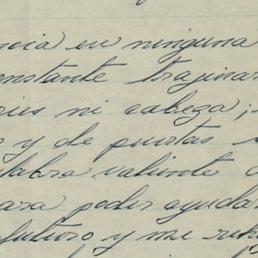 ncia en ninguna
onstante trajinar
ni cabeza;
y de puertas
labra valiente
ara poder ayudar
futuro y me